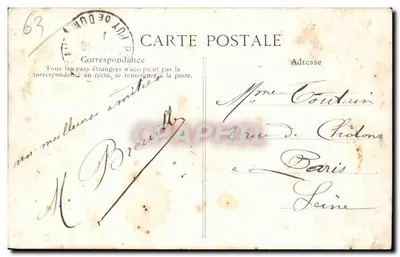 63
PUY DE DOME
CARTE POSTALE
Correspondance
Tous les pays étrangers n'acceptent pas la
correspondance au recto, se renseigner à la poste.
Adresse
mes meilleures amitiés
M.
Mme Toutain
rue de
à Paris
Seine
CPAPHIL